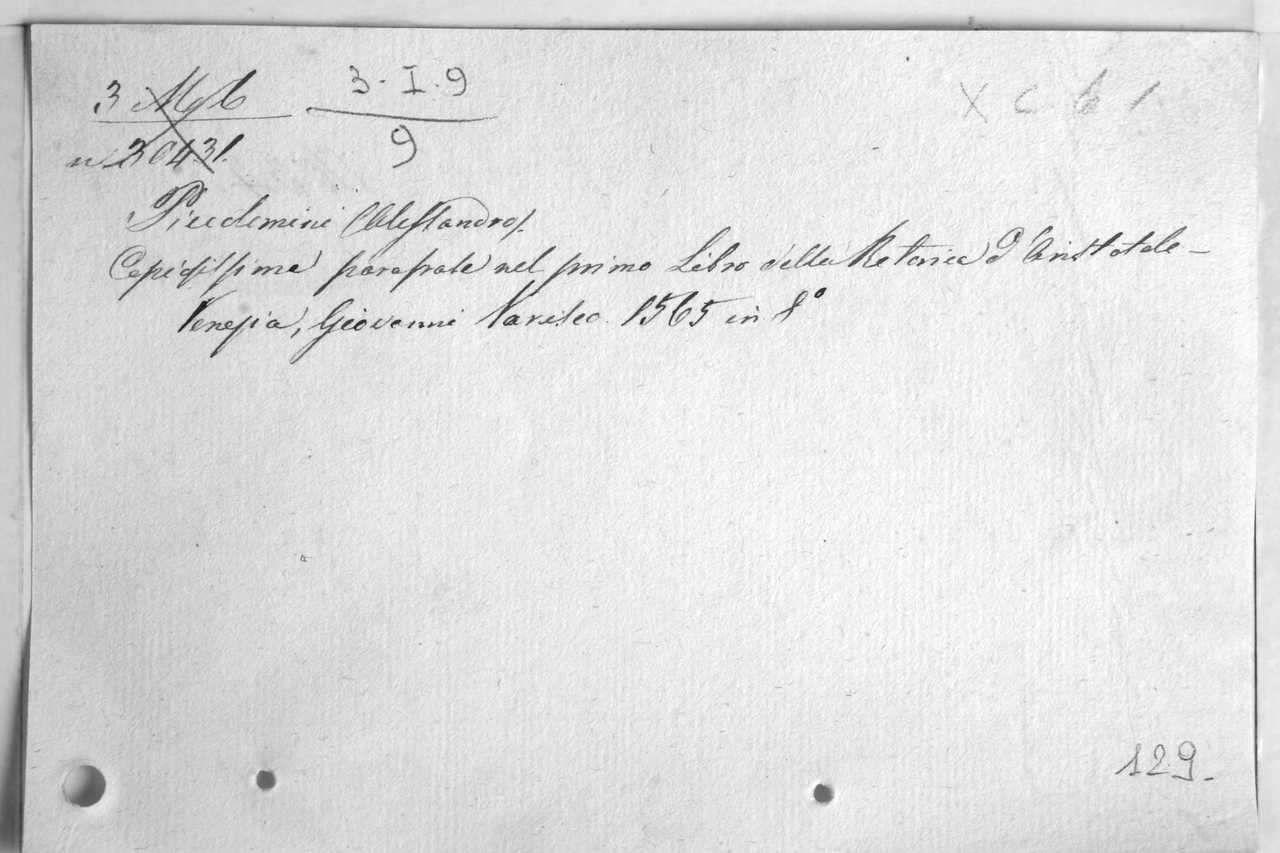 3 Mgb 3-I.9
n 30431. 9
X C b 1
Piccolomini (Alessandro).
Copiosissima parafrase nel primo Libro della Retorica d'Aristotele -
Venezia, Giovanni Varisco. 1565 in 8°
129-